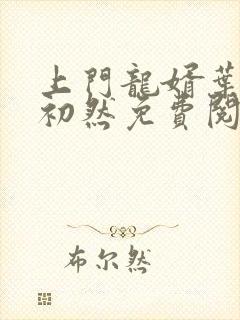 上門龍婿葉
初然免費閱
布尔然